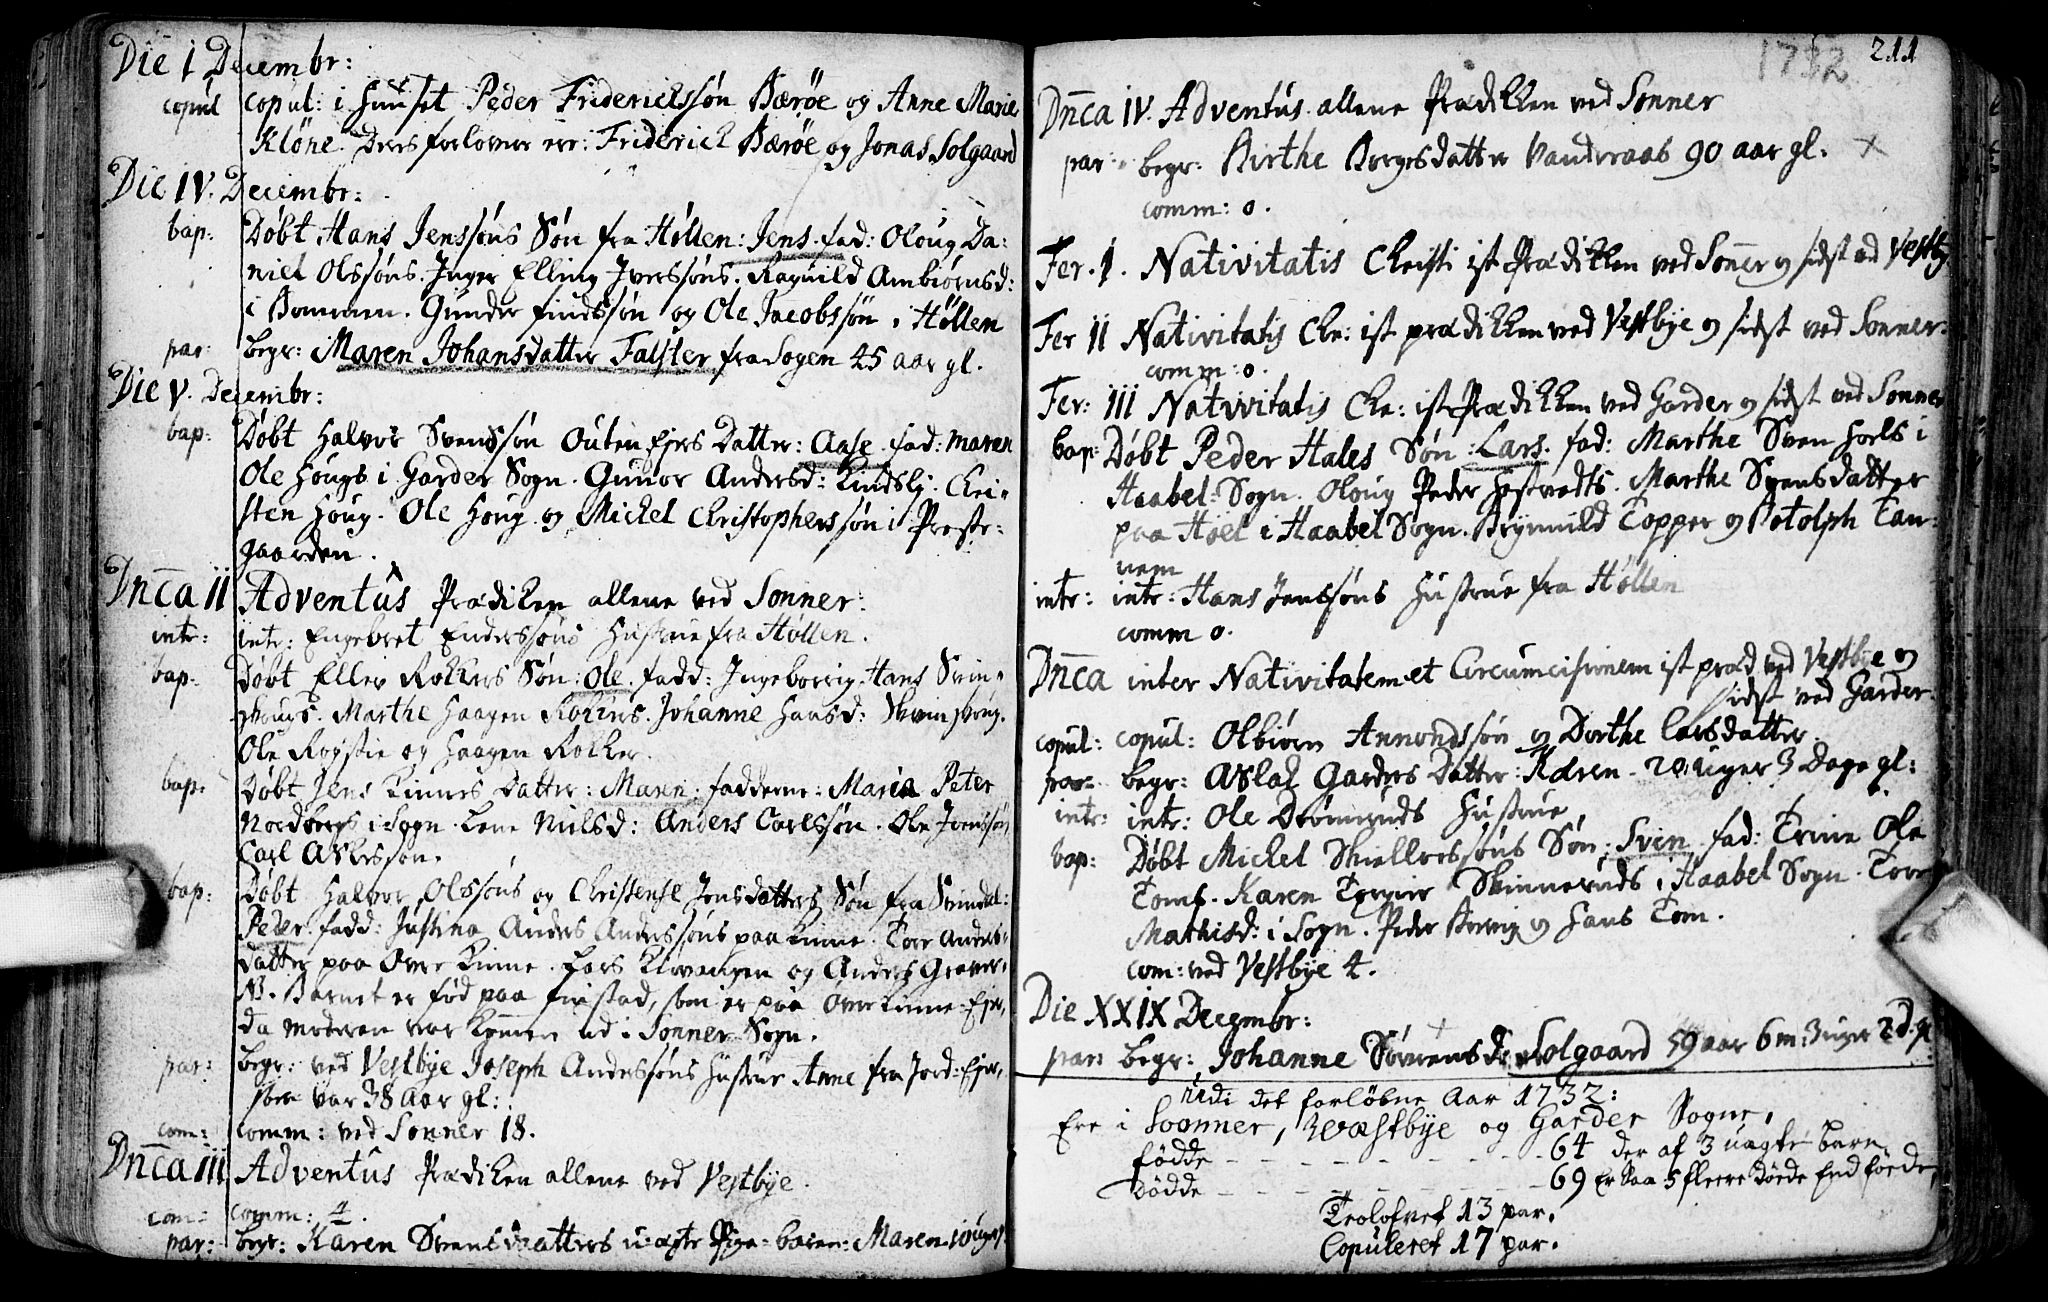 Die I Decembr:
copul copul: i Huuset Peder Friderichssøn Bærøe og Anne Marie
Kløne. Deres forlover ere: Friderich Bærøe og Jonas Solgaard
Die IV. Decembr:
bap: Døbt Hans Jenssøns Søn fra Høllen: Jens. fad: Oloug Da:
niel Olssøns. Inger Elling Iverssøns. Ragnild Ambiørnsd:
i Gunder findssøn og Ole Jacobssøn i Høllen
par: begr: Maren Johansdatter Falster fra Sogen 45 aar gl.
Die V. Decembr:
bap: Døbt Halvor Svenssøn Outen Ejers Datter: Aase. fad: Maren
Ole Hougs i Garder Sogn. Gunor Andersd: Kindslj. Chri-
sten Houg. Ole Houg og Michel Christopherssøn i Preste-
gaarden.
Dnca II Adventus Prædiken allene ved Sonner:
intr: intr: Engebret Enderssøns Hustrue fra Høllen.
bap. Døbt Elles Rolkers Søn: Ole. fadd: Ingeborrig Hans Svin-
skougs. Marthe Haagen Rolkers. Johanne Hansd: Skoug.
Ole Røystie og Haagen Rolker.
bap: Døbt Jens Kinnes Datter: Maren. fadderne: Maria Peter
Nordbergs i Sogn. Lene Nielsd: Anders Carlssøn. Ole Jenssøn
Carl Aslessøn.
bap: Døbt Halvor Olssøns og Christense Jensdatters Søn fra Svindal:
Peder. fadd: Justina Anders Anderssøns paa Kinne. Tore Anders-
datter paa Over Kinne. Lars Klevangen og Anders Graver.
NB. Barnet er fød paa finstad, som er paa Over Kinne Ejer,
da moderen var kommen ud i Sonner Sogn.
par: begr: ved Vestbye Joseph Anderssøns Hustrue Anne fra Jord: Ejer,
som var 38 Aar gl:
com: comm: ved Sonner 18.
Dnca III Adventus Prædiken allene ved Vestbye.
com: comm: 4.
par: begr: Karen Svensdatters uægte Pige-baren: Maren. 10 uger
1732 211
Dnca IV. Adventus allene Prædikken ved Sonner
par: begr: Birthe Borgesdatter Vanderaab 90 aar gl. x
comm: 0.
Fer. I. Nativitatis Christi ist Prædikken ved Sonner og sidst ved Vestby
Fer II Nativitatis Chr: ist prædikken ved Vestbye og sidst ved Sonner:
comm: 0.
Fer: III Nativitatis Chr: ist Prædikken ved Garder og sidst ved Sonner
bap: Døbt Peder Hales Søn: Lars. fad: Marthe Sven Horls i
Haabel: Sogn. Oloug Peder Hestvedts. Marthe Svensdatter
paa Høel i Haabel Sogn. Brynnild Topper og Botolph Tan-
nem
intr: intr: Hans Jenssøns Hustrue fra Høllen
comm 0.
Dnca inter Nativitatem et Circumcisionem ist præd ved Vestbye og
sidst ved Garder
copul: copul: Olbiørn Annondssøn og Dorthe Larsdatter.
par: begr: Aslak Garders Datter: Karen. 20 uger 3 Dage gl:
intr: intr: Ole Drømruds Hustrue
bap: Døbt Michel Skiellerssøns Søn: Sven. fad: Trine Ole
Toms. Karen Skinneruds i Haabel Sogn. Tore
Mathisd: i Sogn. Peder Berrig og Hans Tom.
com: ved Vestbye 4.
Die XXIX Decembr:
par: begr: Johanne Sørensd: Solgaard 59 aar 6 m: 3 uger 2 d. gl
Udi det forløbne Aar 1732:
Ere i Soonner, Wæstbye og Garder Sogne,
fødde - - - - - - - - - 64 der af 3 uægte barn
Dødde - - - - - - - - - 69 Er saa 5 fleere døede End føede,
Trolofvet 13 par.
Copuleret 17 par.